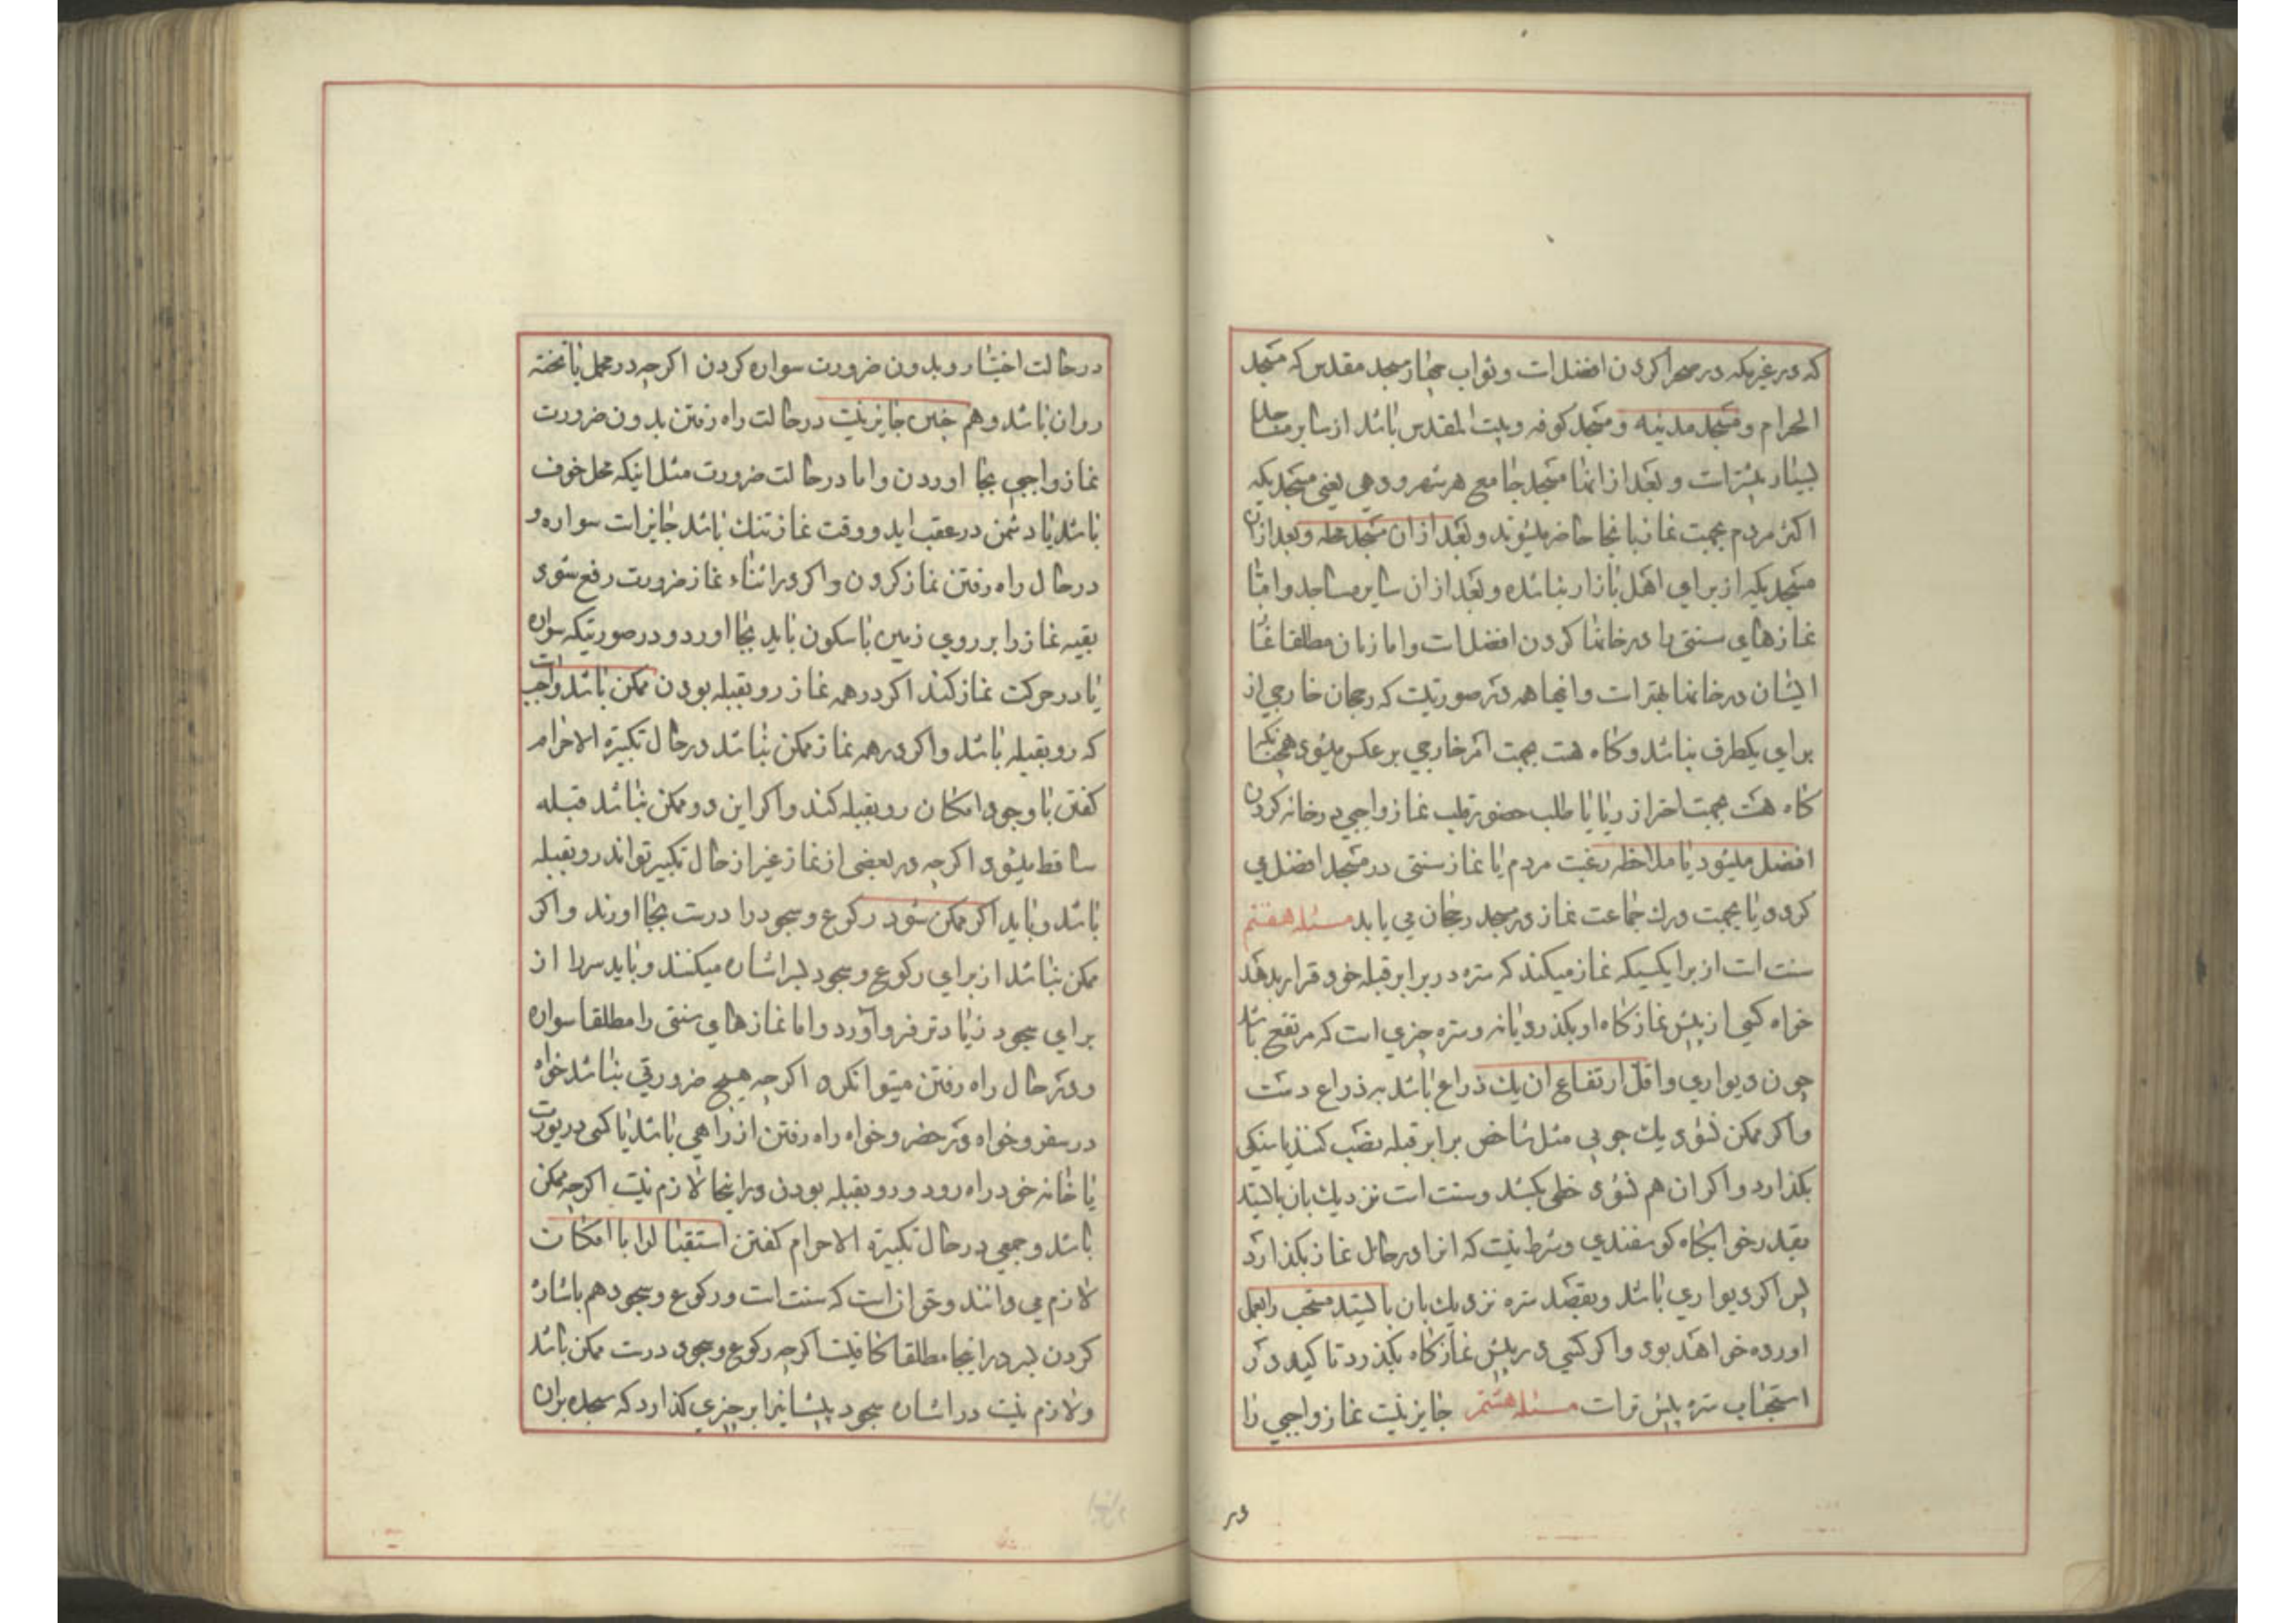 که در غیر مکه در صحرا کردن افضل است و ثواب نماز مسجد مقدس که مسجد
الحرام و مسجد مدینه و مسجد کوفه و بیت المقدس باشد از سایر مساجد
بسیار بیشتر است و بعد از انها مسجد جامع هر شهر و دهی یعنی مسجدیکه
اکثر مردم بجهت نماز بانجا حاضر میشوند و بعد از ان مسجد محله و بعد از ان
مسجدیکه از برای اهل بازار بنا شده و بعد از ان سایر مساجد و اما
نمازهای سنتی را در خانها کردن افضل است و اما زنان مطلقا نماز
ایشان در خانها بهتر است و اینها همه در صورتیست که رجحان خارجی از
برای یکطرف نباشد و کاه هست بجهت امر خارجی بر عکس میشود همچنانکه
کاه هست بجهت احتراز ریا یا طلب حضور قلب نماز واجبی در خانه کردن
افضل میشود یا ملاحظه رغبت مردم یا نماز سنتی در مسجد افضل می
کردد یا بجهت درک جماعت نماز در مسجد رجحان می یابد مسئله هفتم
سنت است از برایکسیکه نماز میکند که ستره در برابر قبله خود قرار بدهد
خواه کسی از پیش نماز کاه او بکذرد یا نه و ستره چیزی است که مرتفع باشد
چون دیواری و اقل ارتفاع ان یک ذراع باشد به ذراع دست
و اکر ممکن نشود یک چوبی مثل شاخص برابر قبله نصب کند یا سنکی
بکذارد و اکر ان هم نشود خطی بکشد و سنت است نزدیک بان بایستد
بقدر خوابکاه کوسفندی و شرط نیست که انرا در حال نماز بکذارد
پس اکر دیواری باشد و بقصد ستره نزدیک بان بایستد مستحب را بعمل
اورده خواهد بود و اکر کسی در پیش نماز کاه بکذرد تاکید در
استحباب ستره پیش تر است مسئله هشتم جایز نیست نماز واجبی را
در
در حالت اختیار و بدون ضرورت سواره کردن اکر چه در محمل یا تخته
روان باشد و هم چنین جایز نیست در حالت راه رفتن بدون ضرورت
نماز واجبی بجا اوردن و اما در حالت ضرورت مثل اینکه محل خوف
باشد یا دشمن در عقب اید و وقت نماز تنک باشد جایز است سواره و
در حال راه رفتن نماز کردن و اکر در اثناء نماز ضرورت رفع شود
بقیه نماز را بر روی زمین با سکون باید بجا اورد و در صورتیکه سواره
یا در حرکت نماز کند اکر در همه نماز رو بقبله بودن ممکن باشد واجب است
که رو بقبله باشد و اکر در همه نماز ممکن نباشد در حال تکبیرة الاحرام
کفتن با وجود امکان رو بقبله کند و اکر این دو ممکن نباشد قبله
ساقط میشود اکر چه در بعضی از نماز غیر از حال تکبیر تواند رو بقبله
باشد و باید اکر ممکن شود رکوع و سجود را درست بجا اورند و اکر
ممکن نباشد از برای رکوع و سجود بسر اشاره میکنند و باید سر را از
برای سجود زیادتر فرو آورد و اما نمازهای سنتی را مطلقا سواره
و در حال راه رفتن میتوانکرد اکر چه هیچ ضرورتی نباشد خواه
در سفر و خواه در حضر و خواه راه رفتن از راهی باشد یا کسی در بیوت
یا خانه خود راه رود و رو بقبله بودن در اینجا لازم نیست اکر چه ممکن
باشد و جمعی در حال تکبیرة الاحرام کفتن استقبال را با امکان
لازم می دانند و حق ان است که سنت است و رکوع و سجود هم باشاره
کردن بسر در اینجا مطلقا کافیست اکر چه رکوع و سجود درست ممکن باشد
و لازم نیست در اشاره سجود پیشانیرا بر چیزی کذارد که سجده بر ان